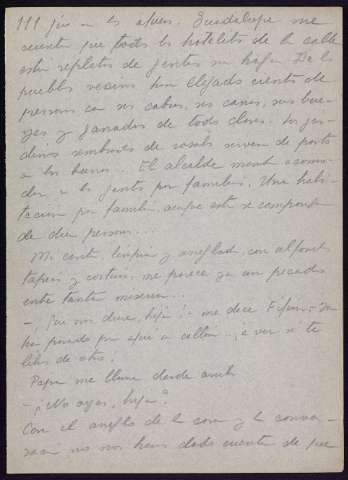 111 jos a los afueras. Guadalupe me
cuenta que todos los hotelitos de la calle
están repletos de gentes sin hogar. De los
pueblos vecinos han llegado cientos de
personas con sus cabras, sus carros, sus bue-
yes y ganados de todas clases. Los jar-
dines sembrados de rosales sirven de pasto
a los bueyes... El alcalde mandó acomo-
dar a las gentes por familias. Una habi-
tación por familia, aunque esta se componga
de diez personas...
Mi cuarto, limpio y arreglado, con alfombra
tapices y cortinas, me parece ya un pecado
entre tanta miseria...
me dice
ha pasado por aquí a ver si te
libras de otra!
Papá me llama desde arriba
- ¿No oyes, hija?
Con el arreglo de la casa y la conver-
sación no nos hemos dado cuenta de que